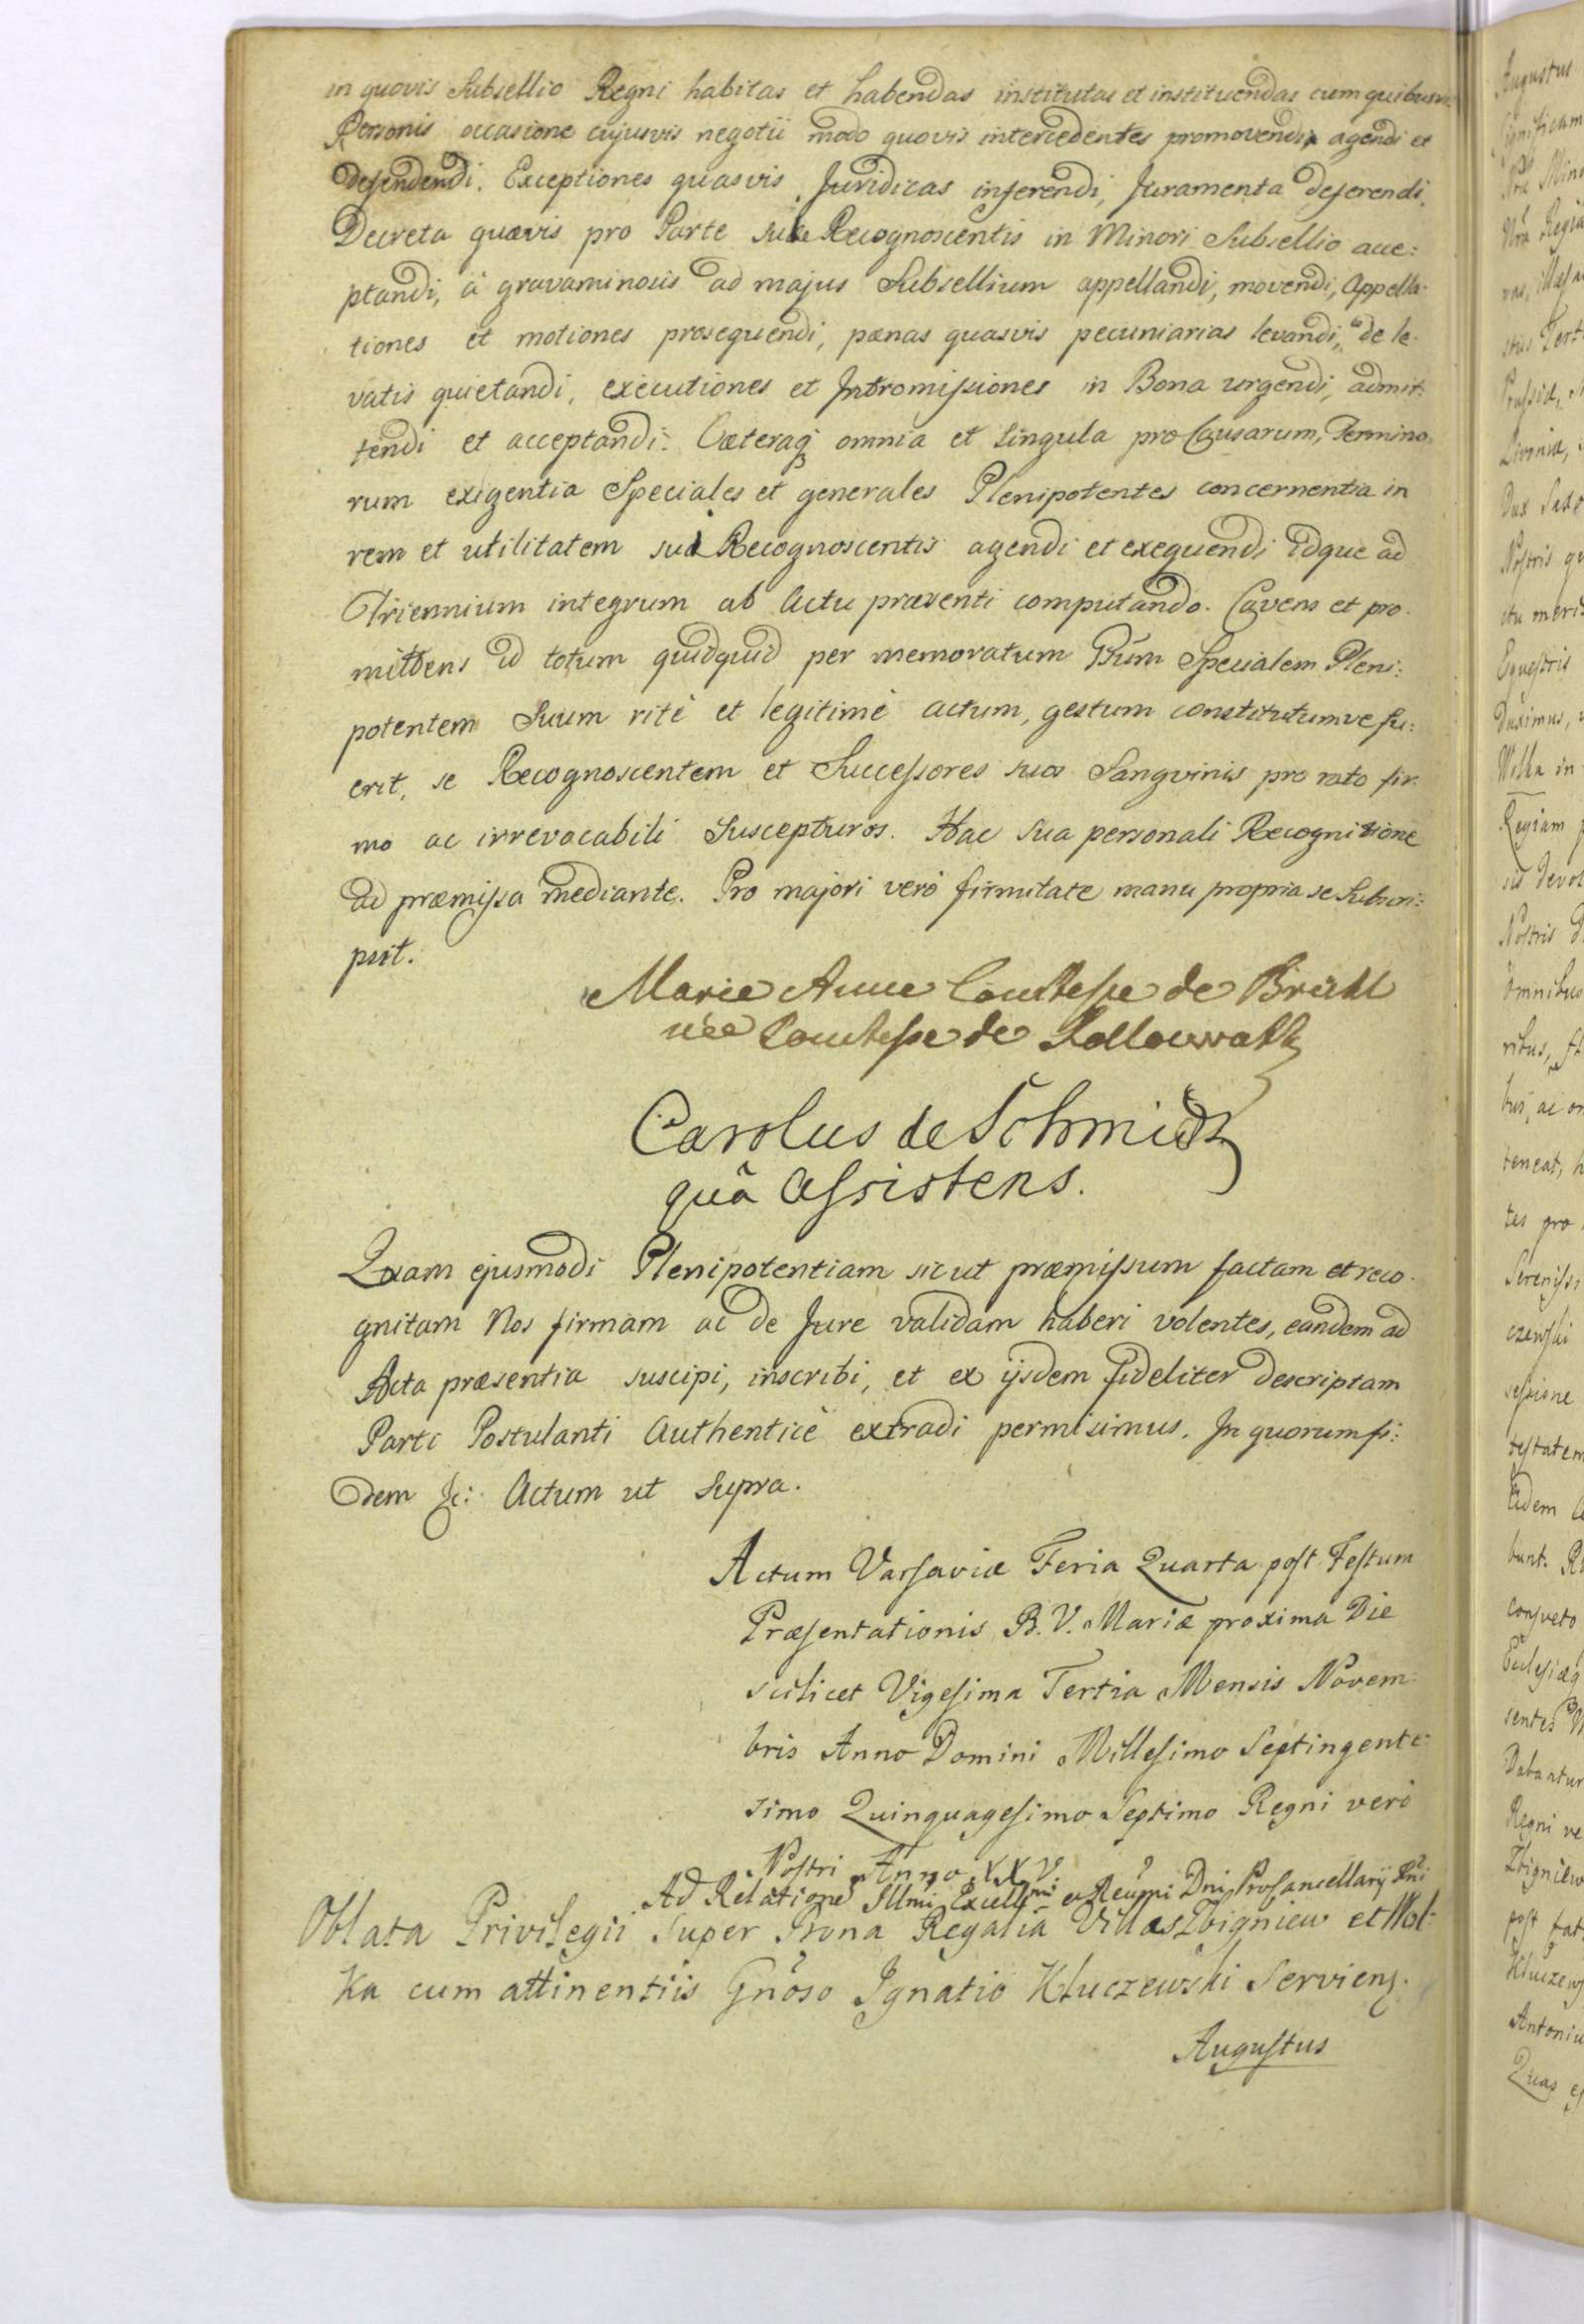 in quovis Subsellio Regni habitas et habendas institutas et instituendas cum quibusvis
Personis occasione cujusvis negotii modo quovis intercedentes promovendi, agendi et
defendendi. Exceptiones quasvis Juridicas inferendi, Juramenta deferendi,
Decreta quævis pro Parte suæ Recognoscentis in Minori Subsellio acce:
ptandi, á gravaminosis ad majus Subsellium appellandi, movendi, Appella-
tiones et motiones prosequendi, pænas quasvis pecuniarias levandi, de le-
vatis quietandi, executiones et Intromissiones in Bona urgendi, admit:
tendi et acceptandi: Cæteraq; omnia et singula pro Causarum, Termino-
rum exigentia Speciales et generales Plenipotentes concernentia in
rem et utilitatem suæ Recognoscentis agendi et exequendi idque ad
Triennium integrum ab Actu præsenti computando. Cavens et pro-
mittens id totum quidquid per memoratum Specialem Pleni:
potentem Suum ritè et legitimè actum, gestum constitutumve fu:
erit, se Recognoscentem et Successores suos Sangvinis pro rato fir-
mo ac irrevocabili Suscepturos. Hac Sua personali Recognitione
ad præmissa mediante. Pro majori verò firmitate manu propria se Subscri:
psit.
Marie Anne Comtesse de Brühl
née Comtesse de Kollowrath
Carolus de Schmidt
quâ Assistens.
Quam ejusmodi Plenipotentiam sicut præmissum factam et reco-
gnitam Nos firmam ac de Jure validam haberi volentes, eandem ad
Acta præsentia suscipi, inscribi, et ex ijsdem fideliter descriptam
Parti Postulanti Authenticè extradi permisimus. In quorum fi:
dem &c: Actum ut Supra.
Actum Varsaviæ Feria Quarta post Festum
Præsentationis B. V. Mariæ proxima Die
scilicet Vigesima Tertia Mensis Novem:
bris Anno Domini Millesimo Septingente:
simo Quinquagesimo Septimo Regni verò
Nostri Anno XXV.
Ad Relatione Illmi Excellmi et Reumi Dni ProCancellarij Rni
Oblata Privilegii Super Bona Regalia Villas Zbigniew et Wol:
ka cum attinentiis Gnoso Ignatio Kluczewski Serviens.
Augustus